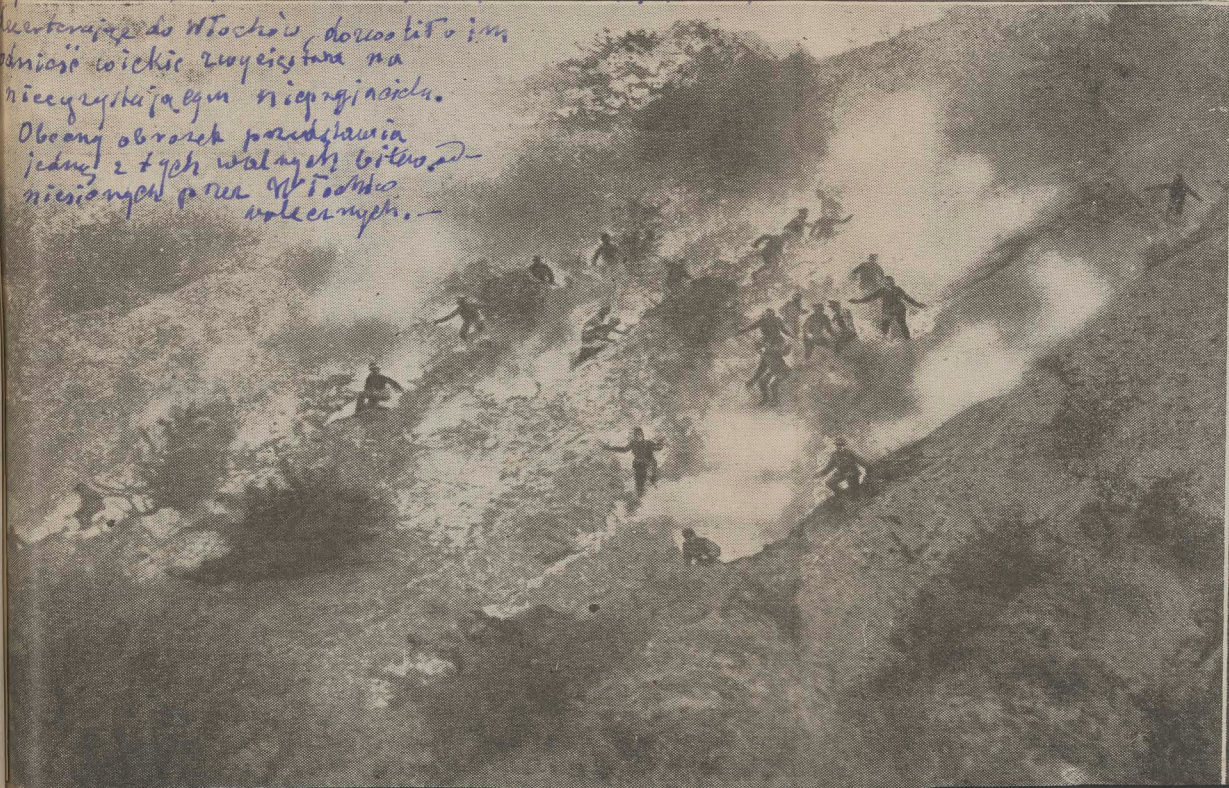 do Włochów, dozwoliło im
odnieść wielkie zwycięstwa na
nieprzyjacielu.
Obecny obrazek przedstawia
jedną z tych walnych bitew od-
niesionych przez Włochów
walecznych. —